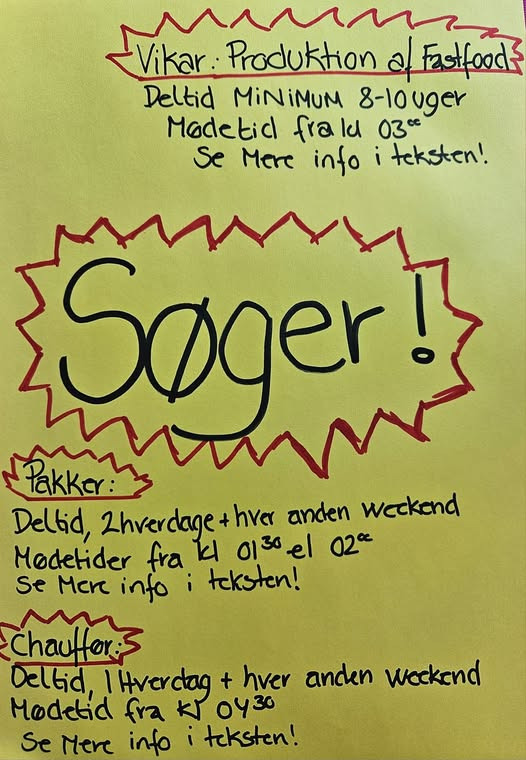 Vikar: Produktion af Fastfood
Deltid MINIMUM 8-10 uger
Mødetid fra kl 03⁰⁰
Se Mere info i teksten!
Søger!
Pakker:
Deltid, 2 hverdage + hver anden weekend
Mødetider fra kl 01³⁰ el 02⁰⁰
Se Mere info i teksten!
Chauffør:
Deltid, 1 Hverdag + hver anden weekend
Mødetid fra kl 04³⁰
Se Mere info i teksten!